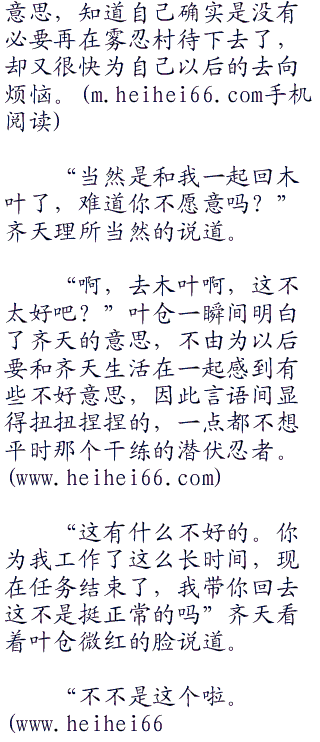 意思，知道自己确实是没有
必要再在雾忍村待下去了，
却又很快为自己以后的去向
烦恼。(m.heihei66.com手机
阅读)
“当然是和我一起回木
叶了，难道你不愿意吗？”
齐天理所当然的说道。
“啊，去木叶啊，这不
太好吧？”叶仓一瞬间明白
了齐天的意思，不由为以后
要和齐天生活在一起感到有
些不好意思，因此言语间显
得扭扭捏捏的，一点都不想
平时那个干练的潜伏忍者。
(www.heihei66.com)
“这有什么不好的。你
为我工作了这么长时间，现
在任务结束了，我带你回去
这不是挺正常的吗”齐天看
着叶仓微红的脸说道。
“不不是这个啦。
(www.heihei66